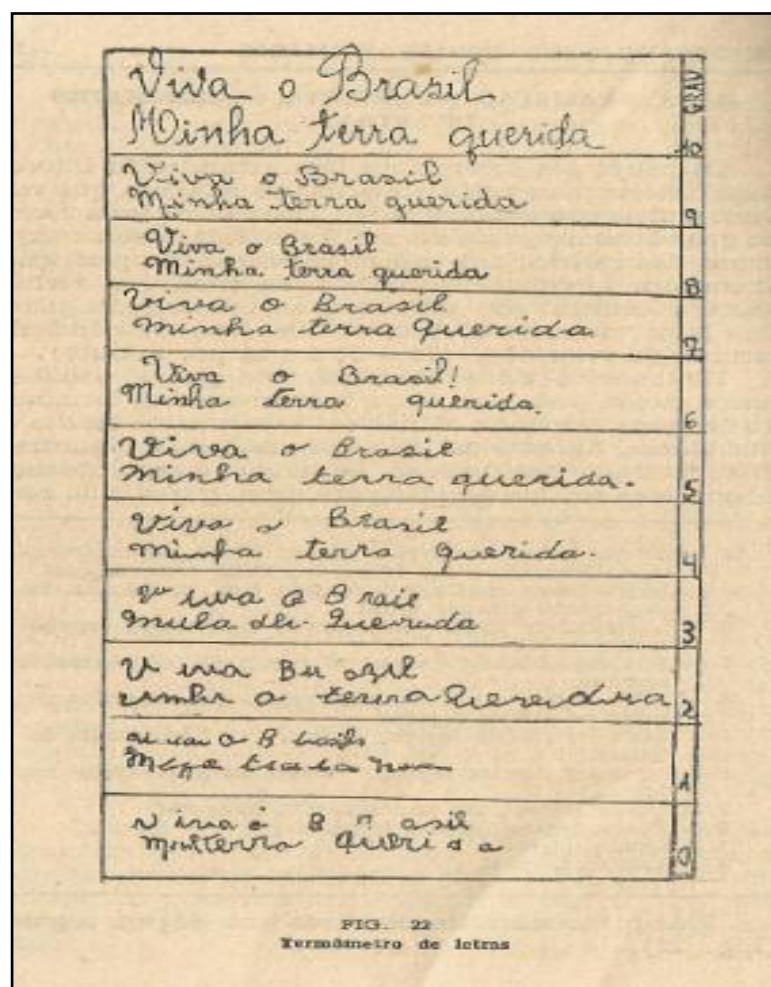 GRAU
Viva o Brasil
Minha terra querida
10
Viva o Brasil
Minha terra querida
9
Viva o Brasil
Minha terra querida
8
Viva o Brasil
Minha terra querida
7
Viva o Brasil!
Minha terra querida.
6
Viva o Brasil
minha terra querida.
5
Viva o Brasil
minha terra querida.
4
uva o B
3
V iva
a terra
2
O B
1
V iva o B r asil
terra Queri d a
0
FIG. 22
Termômetro de letras